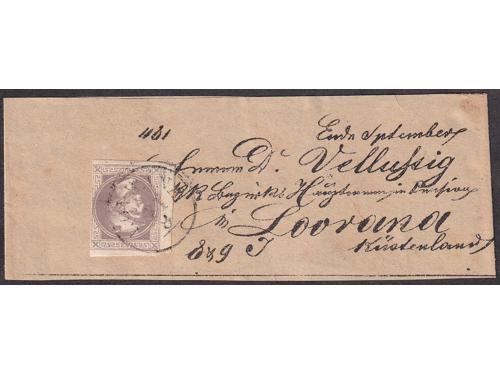 481
Ende September
Herrn Dr. Vellussig
k k Bezirks Hauptmann in Pension
in Lovrana
Küstenland